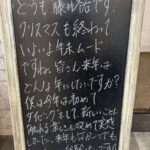 どうも藤井祐です。
クリスマスも終わって
いよいよ年末ムード
ですね。皆さん来年は
どんな年にしたいですか？
僕は今年は初めて
ダイビングをして、新しいことに
触れる楽しさを改めて実感
しました。来年も何か